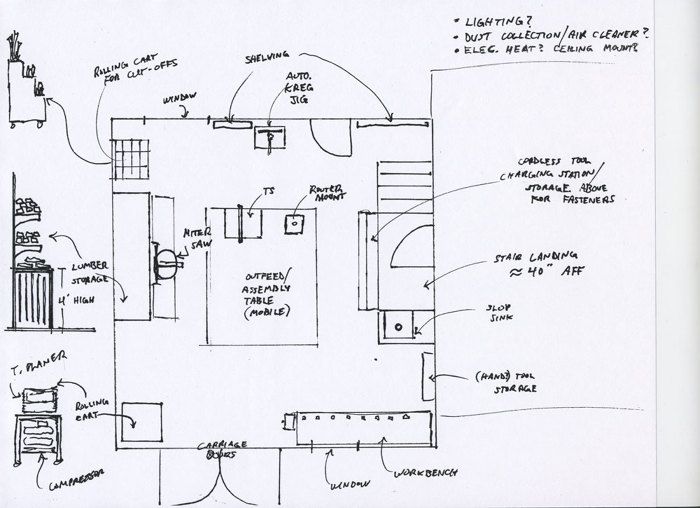 • LIGHTING?
• DUST COLLECTION/AIR CLEANER?
• ELEC. HEAT? CEILING MOUNT?
ROLLING CART
FOR CUT-OFFS
SHELVING
WINDOW
AUTO.
KREG
JIG
CORDLESS TOOL
CHARGING STATION/
STORAGE ABOVE
FOR FASTENERS
TS
ROUTER
MOUNT
MITER
SAW
LUMBER
STORAGE
4' HIGH
OUTFEED/
ASSEMBLY
TABLE
(MOBILE)
STAIR LANDING
≈ 40" AFF
SLOP
SINK
(HAND?) TOOL
STORAGE
T. PLANER
ROLLING
CART
COMPRESSOR
CARRIAGE
DOORS
WINDOW
WORKBENCH